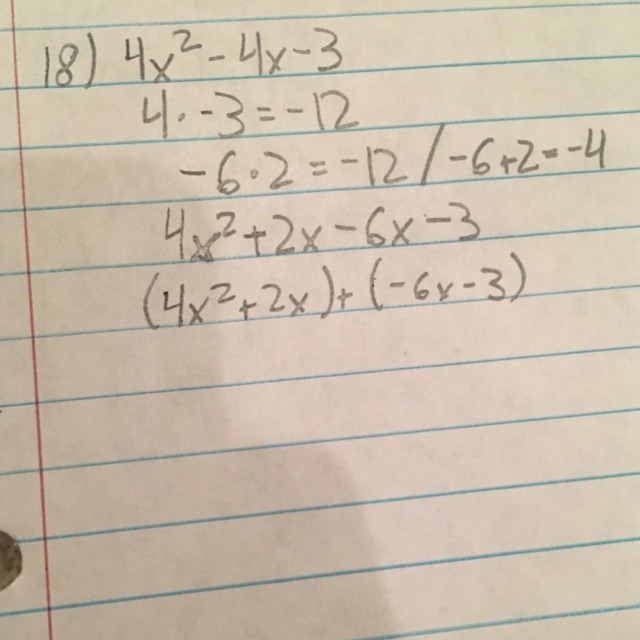 18) 4x² - 4x - 3
4 · -3 = -12
-6 · 2 = -12 / -6 + 2 = -4
4x² + 2x - 6x - 3
(4x² + 2x) + (-6x - 3)